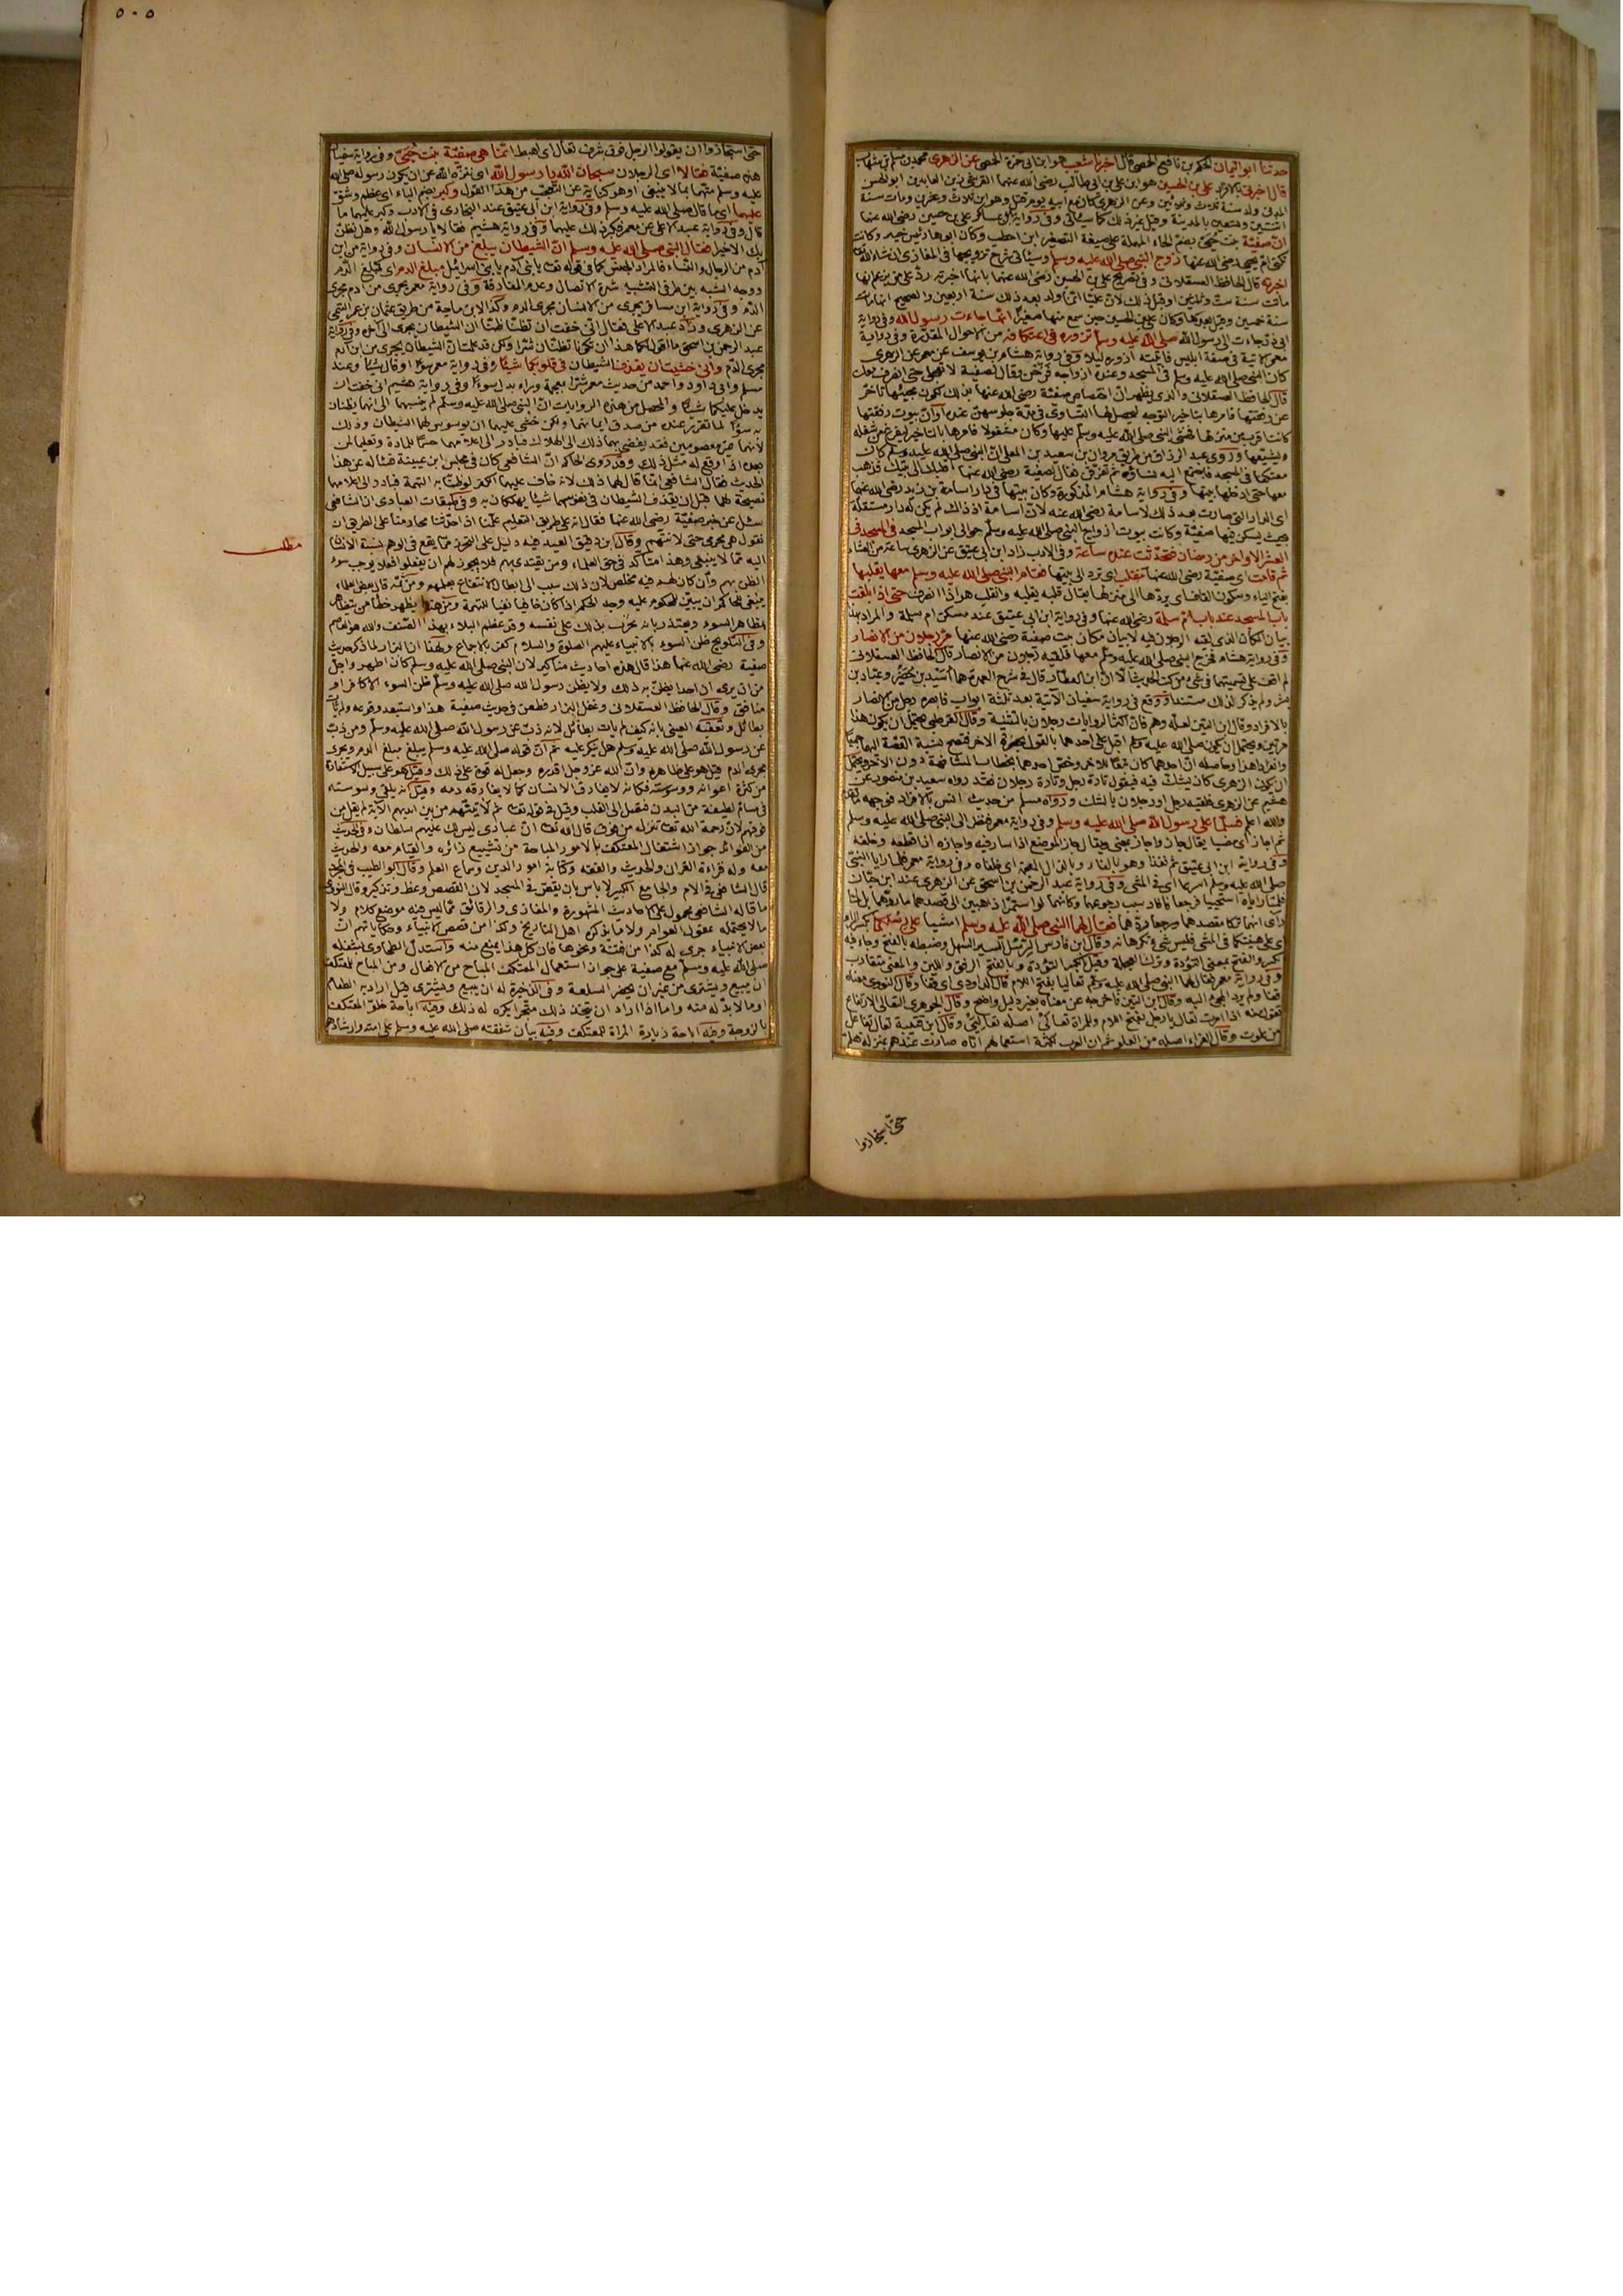 حدثنا ابو اليمان الحكم بن نافع الحمصى قال اخبرنا شعيب هو ابن ابى حمزة الحمصى عن الزهرى محمد بن مسلم بن شهاب
قال اخبرنى بالافراد على بن الحسين هو ابن على بن ابى طالب رضى الله عنهما القرشى زين العابدين ابو الحسن
المدنى ولد سنة ثلاث وثلاثين وعن الزهرى كان مع ابيه يوم قتل وهو ابن ثلاث وعشرين ومات سنة
اثنتين وتسعين بالمدينة وقيل غير ذلك كما سيأتى وفى رواية ابن عساكر على بن حسين رضى الله عنهما
ان صفية بنت حيى بضم الحاء المهملة على صيغة التصغير ابن اخطب وكان ابوها رئيس خيبر وكانت
تكنى ام يحيى رضى الله عنها زوج النبى صلى الله عليه وسلم وسيأتى شرح تزويجها فى المغازى ان شاء الله
اخبرته قال الحافظ العسقلانى وفى تصريح على بن الحسين رضى الله عنهما بانها اخبرته رد على من زعم انها
ماتت سنة ست وثلاثين او قبل ذلك لان عليا انما ولد بعد ذلك سنة اربعين والصحيح انها ماتت
سنة خمسين وقيل بعدها وكان على بن الحسين حين سمع منها صغيرا انها جاءت رسول الله وفى رواية
ابى ذر جاءت الى رسول الله صلى الله عليه وسلم تزوره فى اعتكافه من الاحوال المقدرة وفى رواية
معمر الآتية فى صفة ابليس فاتيته ازوره ليلا وفى رواية هشام بن يوسف عن معمر عن الزهرى
كان النبى صلى الله عليه وسلم فى المسجد وعنده ازواجه فرحن وقال لصفية لا تعجلى حتى انصرف معك
قال الحافظ العسقلانى والذى يظهر ان اختصاص صفية رضى الله عنها بذلك لكون مجيئها تأخر
عن رفقتها فامرها بتاخير التوجه ليحصل لها التساوى فى مدة جلوسهن عنده او ان بيوت رفقتها
كانت اقرب من منزلها فخشى النبى صلى الله عليه وسلم عليها وكان مشغولا فامرها بالتاخر ليفرغ من شغله
ويشيعها وروى عبد الرزاق من طريق مروان بن سعيد بن المعلى ان النبى صلى الله عليه وسلم كان
معتكفا فى المسجد فاجتمع اليه نساؤه ثم تفرقن فقال لصفية رضى الله عنها اقلبك الى بيتك فذهب
معها حتى ادخلها بيتها وفى رواية هشام المذكورة وكان بيتها فى دار اسامة بن زيد رضى الله عنهما
اى الدار التى صارت بعد ذلك لاسامة رضى الله عنه لان اسامة اذ ذاك لم يكن له دار مستقلة
بحيث يسكن فيها صفية وكانت بيوت ازواج النبى صلى الله عليه وسلم حوالى ابواب المسجد فى المسجد فى
العشر الاواخر من رمضان فتحدثت عنده ساعة وفى الادب زاد ابن ابى عتيق عن الزهرى ساعة من العشاء
ثم قامت اى صفية رضى الله عنها تنقلب اى ترد الى بيتها فقام النبى صلى الله عليه وسلم معها يقلبها
بفتح الياء وسكون القاف اى يردها الى منزلها يقال قلبه يقلبه وانقلب هو اذا انصرف حتى اذا بلغت
باب المسجد عند باب ام سلمة رضى الله عنها وفى رواية ابن ابى عتيق عند مسكن ام سلمة والمراد بهذا
بيان المكان الذى لقيه الرجلان فيه لا بيان مكان بيت صفية رضى الله عنها مر رجلان من الانصار
وفى رواية هشام فخرج النبى صلى الله عليه وسلم معها فلقيه رجلان من الانصار قال الحافظ العسقلانى
لم اقف على تسميتهما فى شئ من كتب الحديث الا ان ابن العطار قال فى شرح العمدة هما اسيد بن حضير وعباد بن
بشر ولم يذكر لذلك مستندا ووقع فى رواية سفيان الآتية بعد ثلثة ابواب فابصره رجل من الانصار
بالافراد وقال ابن التين لعله وهم فان اكثر الروايات رجلان بالتثنية وقال القرطبى يحتمل ان يكون هذا
مرتين ويحتمل ان يكون صلى الله عليه وسلم اقبل على احدهما بالقول بحضرة الآخر فتصح نسبة القصة اليهما جميعا
وافرادا هذا وحاصله ان احدهما كان تبعا للآخر وخص احدهما بخطاب المشافهة دون الآخر ويحتمل
ان يكون الزهرى كان يشك فيه فيقول تارة رجل وتارة رجلان فقد رواه سعيد بن منصور عن
هشيم عن الزهرى فلقيه رجل او رجلان بالشك ورواه مسلم من حديث انس بالافراد فوجهه ما تقدم
والله اعلم فسلما على رسول الله صلى الله عليه وسلم وفى رواية معمر فنظر الى النبى صلى الله عليه وسلم
ثم اجاز اى مضيا يقال جاز واجاز بمعنى ويقال جاز الموضع اذا سار فيه واجازه اذا قطعه وخلفه
وفى رواية ابن ابى عتيق ثم نفذا وهو بالفاء وبالذال المعجمة اى خلفاه وفى رواية معمر فلما رايا النبى
صلى الله عليه وسلم اسرعا اى فى المشى وفى رواية عبد الرحمن بن اسحق عن الزهرى عند ابن حبان
فلما رأياه استحييا فرجعا فافاد سبب رجوعهما وكانهما لو استمرا ذاهبين الى مقصدهما ما ردهما بل لما
رآى انهما تركا مقصدهما ورجعا ردهما فقال لهما النبى صلى الله عليه وسلم امشيا على رسلكما بكسر الراء
اى على هينتكما فى المشى فليس شئ تكرهانه وقال ابن فارس الرسل السير السهل وضبطه بالفتح وجاء فيه
الكسر والفتح بمعنى التؤدة وترك العجلة وقيل بالكسر التؤدة وبالفتح الرفق واللين والمعنى متقارب
وفى رواية معمر فقال لهما النبى صلى الله عليه وسلم تعاليا بفتح اللام قال الداودى اى قفا وقال النووى معناه
قفا ولم يرد المجئ اليه وقال ابن التين فاخرجه عن معناه بغير دليل واضح وقال الجوهرى التعالى الارتفاع
تقول منه اذا امرت تعال يا رجل بفتح اللام وللمراة تعالى اصله تعاليى وقال ابن قتيبة تعال تفاعل
من علوت وقال الفراء اصله من العلو ثم ان العرب لكثرة استعمالهم اياه صارت عندهم بمنزلة هلم
حتى استجازوا
٥٠٥
حتى استجازوا ان يقولوا لرجل فوق شرف تعال اى اهبط انما هى صفية بنت حيى وفى رواية سفيان
هذه صفية فقالا اى الرجلان سبحان الله يا رسول الله اى تنزه الله عن ان يكون رسوله صلى الله
عليه وسلم متهما بما لا ينبغى او هو كناية عن التعجب من هذا القول وكبر بضم الباء اى عظم وشق
عليهما اى ما قال صلى الله عليه وسلم وفى رواية ابن ابى عتيق عند البخارى فى الادب وكبر عليهما ما
قال وفى رواية عبد الاعلى عن معمر فكبر ذلك عليهما وفى رواية هشيم فقالا يا رسول الله وهل نظن
بك الا خيرا فقال النبى صلى الله عليه وسلم ان الشيطان يبلغ من الانسان وفى رواية من ابن
آدم من الرجال والنساء فالمراد الجنس كما فى قوله تعالى يا بنى آدم يا بنى اسرائيل مبلغ الدم اى كمبلغ الدم
ووجه الشبه بين طرفى التشبيه شدة الاتصال وعدم المفارقة وفى رواية معمر يجرى من ابن آدم مجرى
الدم وفى رواية ابن مسافر يجرى من الانسان مجرى الدم وكذا لابن ماجة من طريق عثمان بن عمر التيمى
عن الزهرى وزاد عبد الاعلى فقال انى خفت ان تظنا ظنا ان الشيطان يجرى الى آخره وفى رواية
عبد الرحمن بن اسحق ما اقول لكما هذا ان تكونا تظنان شرا ولكن قد علمت ان الشيطان يجرى من ابن آدم
مجرى الدم وانى خشيت ان يقذف الشيطان فى قلوبكما شيئا وفى رواية معمر سوءا او قال شيئا وعند
مسلم وابى داود واحمد من حديث معمر شرا بمعجمة وراء بدل سوءا وفى رواية هشيم انى خفت ان
يدخل عليكما شيئا والمحصل من هذه الروايات ان النبى صلى الله عليه وسلم لم ينسبهما الى انهما يظنان
به سوءا لما تقرر عنده من صدق ايمانهما ولكن خشى عليهما ان يوسوس لهما الشيطان وذلك
لانهما غير معصومين فقد يفضى بهما ذلك الى الهلاك فبادر الى اعلامهما حسما للمادة وتعليما لمن
بعده اذا وقع له مثل ذلك وقد روى الحاكم ان الشافعى كان فى مجلس ابن عيينة فسأله عن هذا
الحديث فقال الشافعى انما قال لهما ذلك لانه خاف عليهما الكفر لو ظنا به التهمة فبادر الى اعلامهما
نصيحة لهما قبل ان يقذف الشيطان فى نفوسهما شيئا يهلكان به وفى طبقات العبادى ان الشافعى
سئل عن خبر صفية رضى الله عنها فقال انه على طريق التعليم علمنا اذا حدثنا محارمنا على الطريق ان
نقول هى محرمى حتى لا نتهم وقال ابن دقيق العيد فيه دليل على التحرز مما يقع فى الوهم نسبة الانسان
مطلب
اليه مما لا ينبغى وهذا متأكد فى حق العلماء ومن يقتدى بهم فلا يجوز لهم ان يفعلوا فعلا يوجب سوء
الظن بهم وان كان لهم فيه مخلص لان ذلك سبب الى ابطال الانتفاع بعلمهم ومن ثمه قال بعض العلماء
ينبغى للحاكم ان يبين للمحكوم عليه وجه الحكم اذا كان خافيا نفيا للتهمة ومن هنا يظهر خطأ من يتظاهر
بمظاهر السوء ويعتذر بانه يجرب بذلك على نفسه وقد عظم البلاء بهذا الصنف والله هو العاصم
وفى التلويح ظن السوء بالانبياء عليهم الصلوة والسلام كفر بالاجماع ولهذا ان البزار لما ذكر حديث
صفية رضى الله عنها هذا قال هذه احاديث مناكير لان النبى صلى الله عليه وسلم كان اطهر واجل
من ان يرى ان احدا يظن به ذلك ولا يظن برسول الله صلى الله عليه وسلم ظن السوء الا كافر او
منافق وقال الحافظ العسقلانى وغفل البزار فطعن فى حديث صفية هذا واستبعد وقوعه ولم يأت
بطائل وتعقبه العينى بانه كيف لم يأت بطائل لانه ذب عن رسول الله صلى الله عليه وسلم ومن ذب
عن رسول الله صلى الله عليه وسلم هل ينكر عليه ثم ان قوله صلى الله عليه وسلم يبلغ مبلغ الدم ويجرى
مجرى الدم قيل هو على ظاهره وان الله عز وجل اقدره وجعل له قوة على ذلك وقيل هو على سبيل الاستعارة
من كثرة اعوانه ووسوسته فكانه لا يفارق الانسان كما لا يفارقه دمه وقيل انه يلقى وسوسته
فى مسام لطيفة من البدن فيصل الى القلب وقيل فى قوله تعالى ثم لآتينهم من بين ايديهم الآية لم يقل من
فوقهم لان رحمة الله تعالى تنزل من فوق قال الله تعالى ان عبادى ليس لك عليهم سلطان وفى الحديث
من الفوائد جواز اشتغال المعتكف بالامور المباحة من تشييع زائره والقيام معه والحديث
معه وله قراءة القرآن والحديث والفقه وكتابة امور الدين وسماع العلم وقال ابو الطيب فى المجرد
قال الشافعى فى الام والجامع الكبير لا بأس بان يقص فى المسجد لان القصص وعظ وتذكير وقال النووى
ما قاله الشافعى محمول على الاحاديث المشهورة والمغازى والرقائق مما ليس فيه موضع كلام ولا
ما لا يحتمله عقول العوام ولا ما يذكره اهل التاريخ وكذا من قصص الانبياء وحكاياتهم ان
بعض الانبياء جرى له كذا من فتنة ونحوها فان كل هذا يمنع منه واستدل الطحاوى بشغله
صلى الله عليه وسلم مع صفية على جواز استعمال المعتكف المباح من الافعال ومن المباح للمعتكف
ان يبيع ويشترى من غير ان يحضر السلعة وفى الذخيرة له ان يبيع ويشترى قيل اراد به الطعام
او ما لا بد له منه واما اذا اراد ان يتخذ ذلك متجرا يكره له ذلك وفيه اباحة خلوة المعتكف
بالزوجة وفيه اباحة زيارة المرأة للمعتكف وفيه بيان شفقته صلى الله عليه وسلم على امته وارشادهم